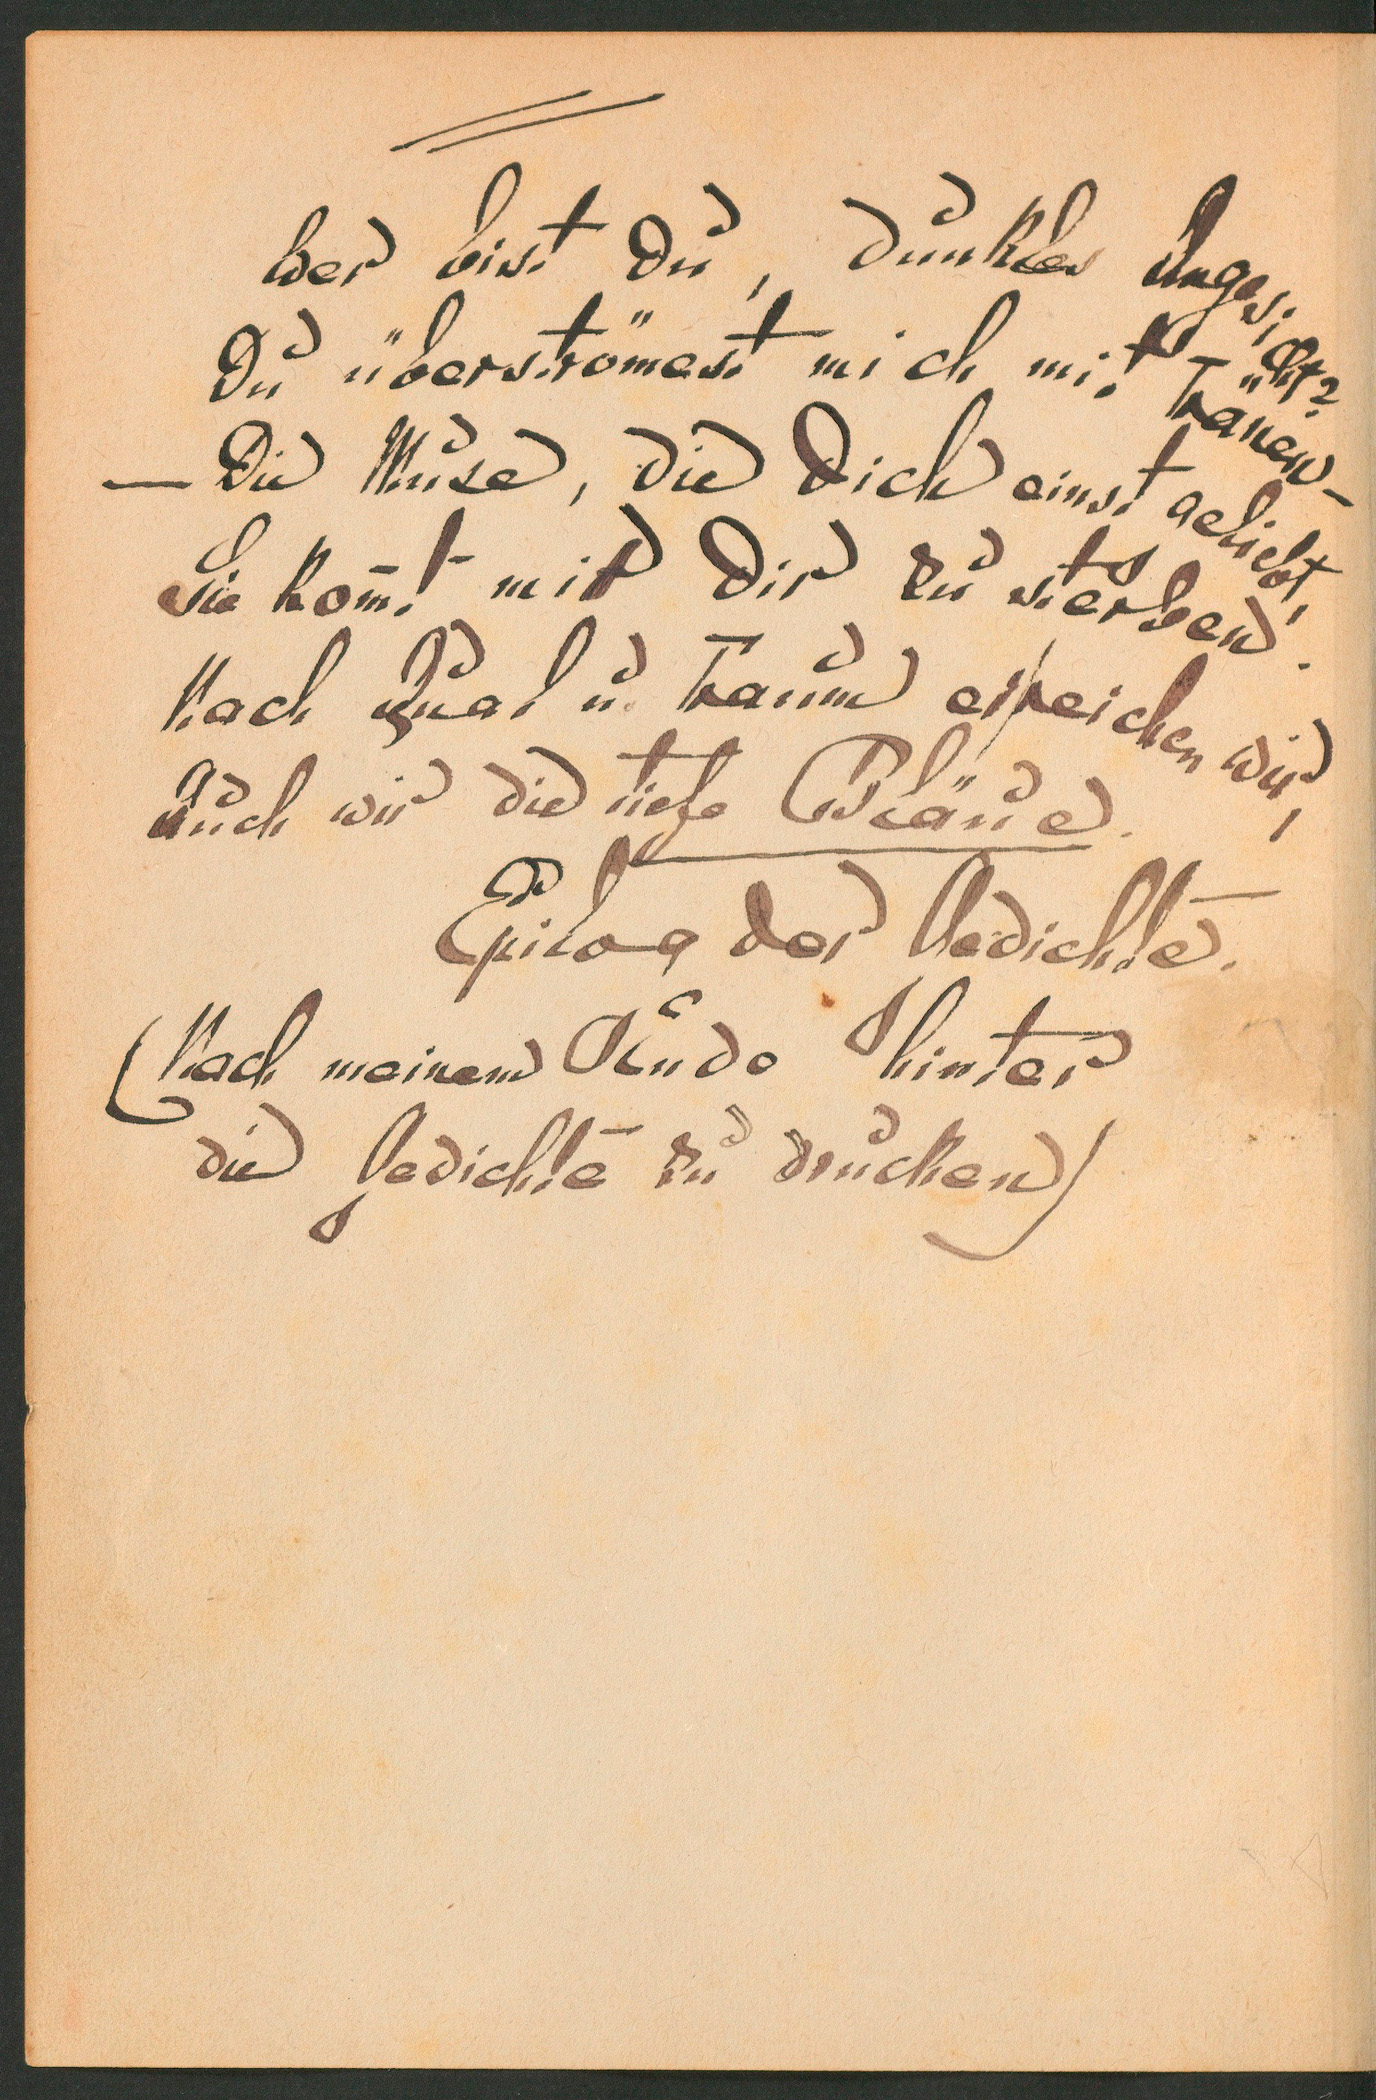 Wer bist Du, dunkles Angesicht?
Du überströmest mich mit Tränen –
– Die Muse, die Dich einst geliebt,
Sie kom̄t mit Dir zu sterben.
Nach Qual u. Traum erreichen wir,
Auch wir die tiefe Bläue.
Epilog der Gedichte.
(Nach meinem Ende hinter
die Gedichte zu drucken)